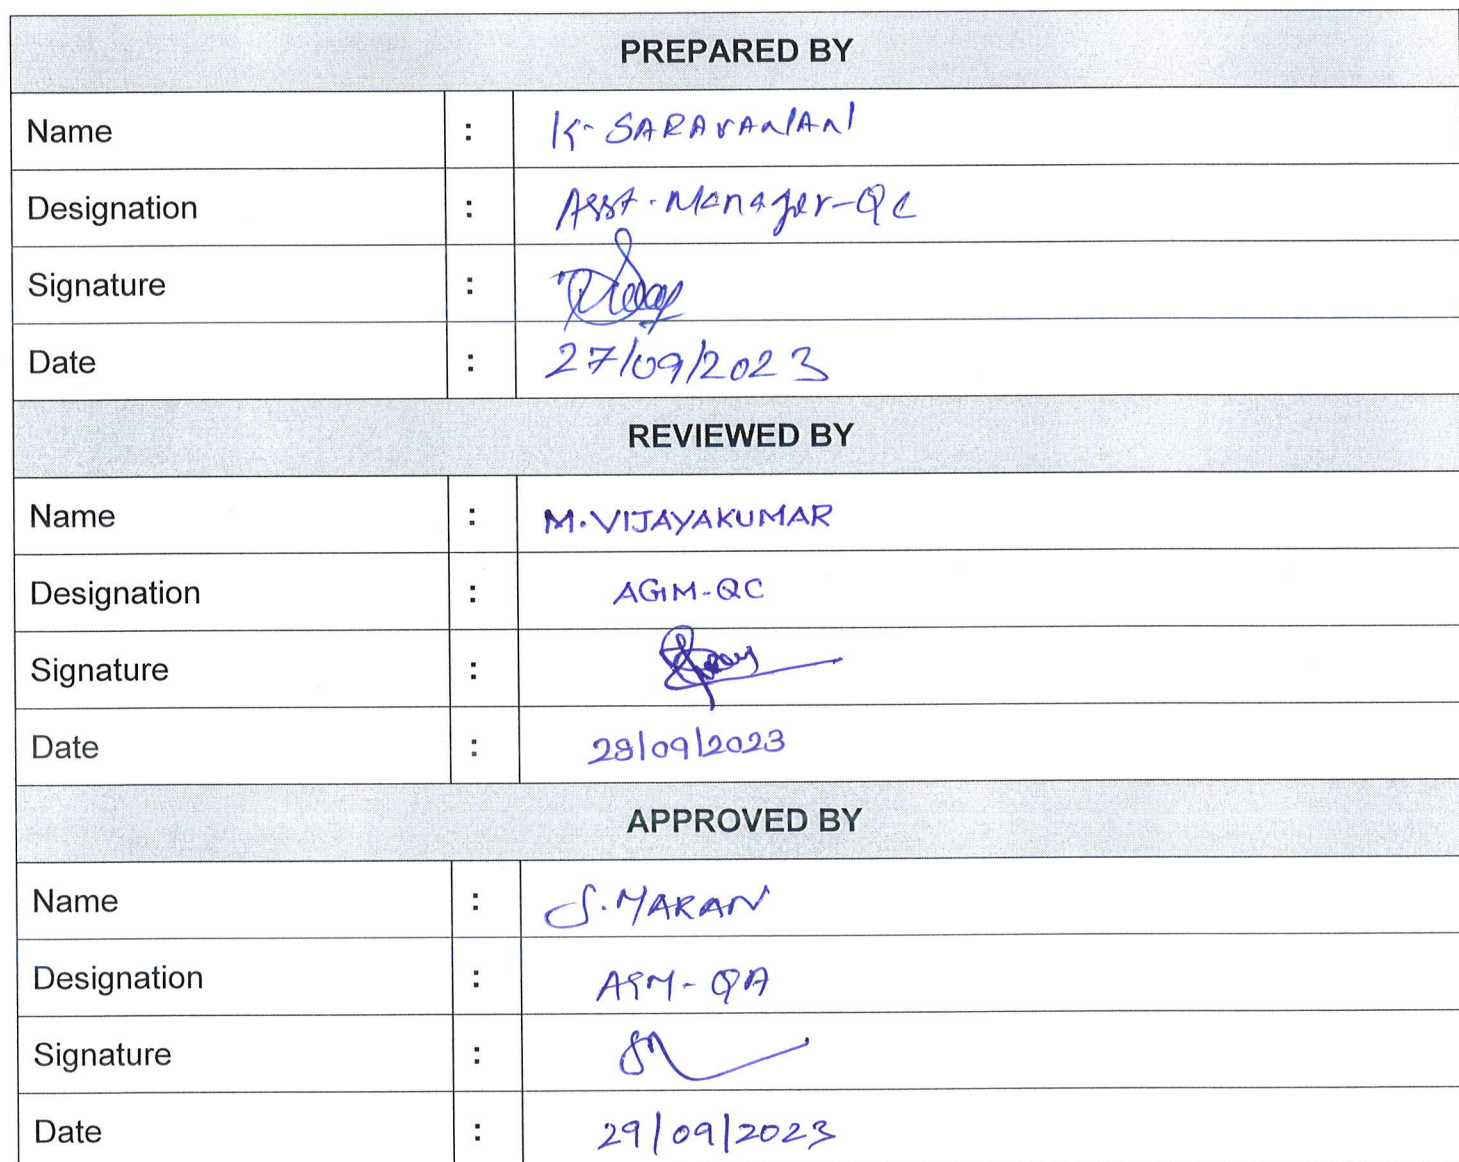 PREPARED BY
Name : K. SARAVANAN
Designation : Asst. Manager-QC
Signature :
Date : 27/09/2023
REVIEWED BY
Name : M. VIJAYAKUMAR
Designation : AGM-QC
Signature :
Date : 28/09/2023
APPROVED BY
Name : S. MARAN
Designation : AGM-QA
Signature :
Date : 29/09/2023